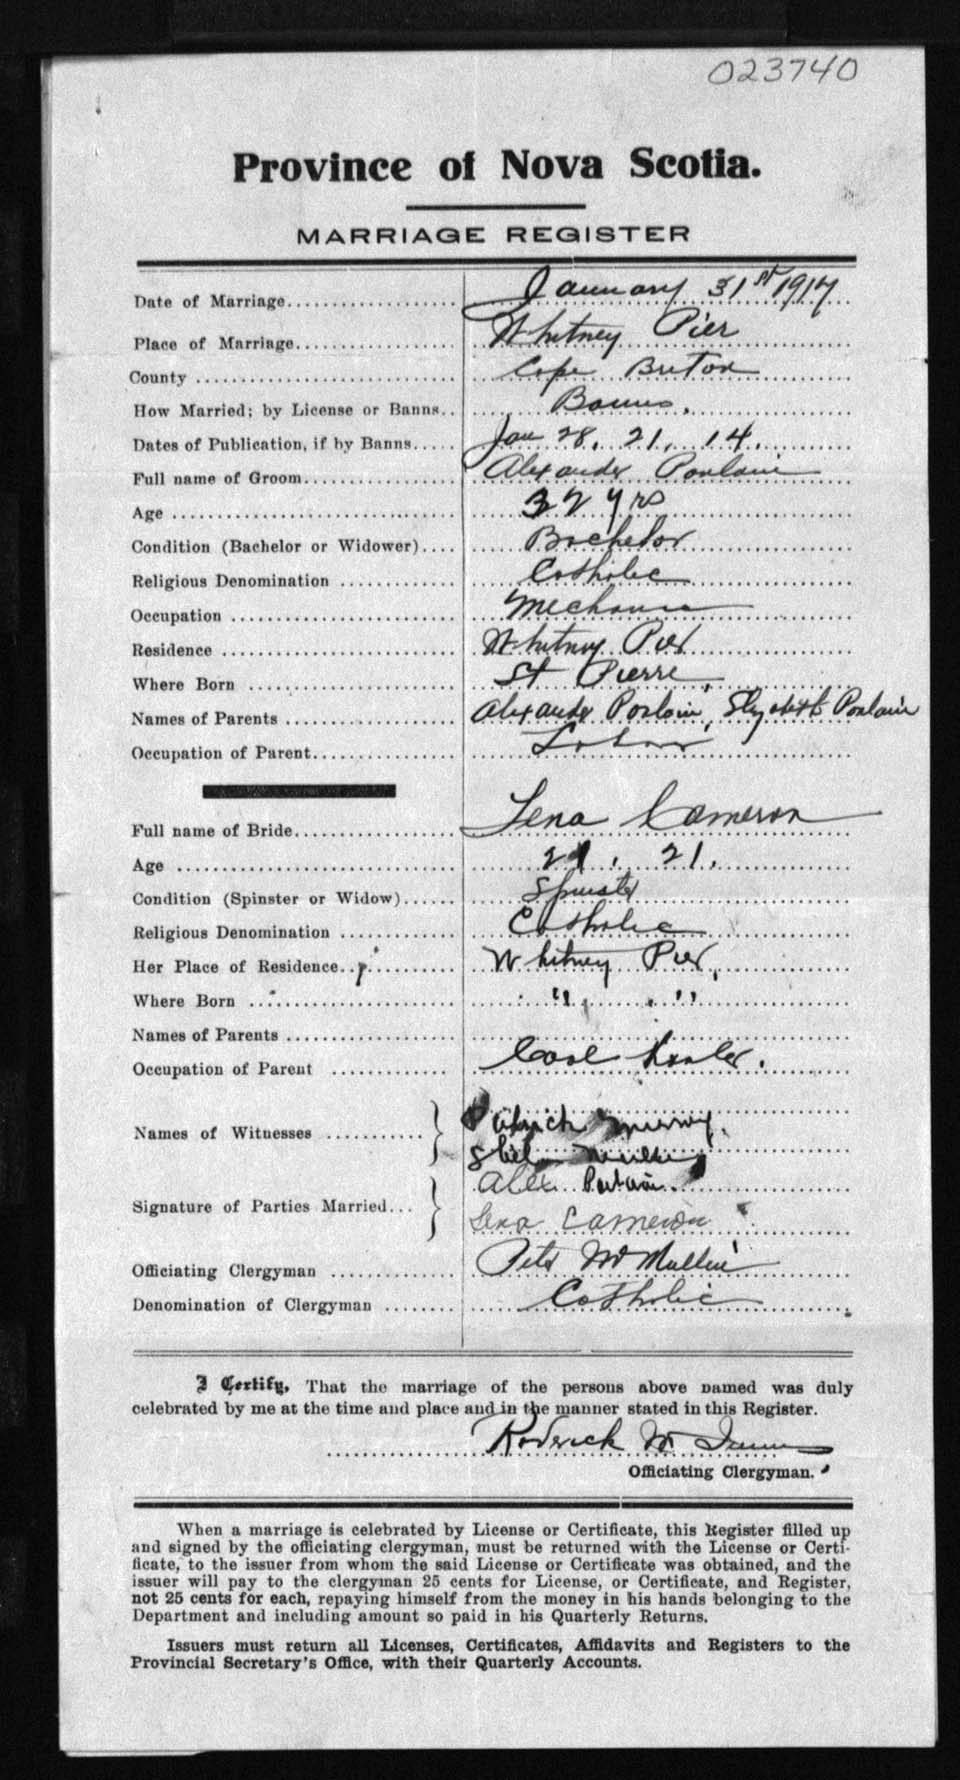 023740
Province of Nova Scotia.
MARRIAGE REGISTER
Date of Marriage.................... January 31st 1917
Place of Marriage................... Whitney Pier
County .............................. Cape Breton
How Married; by License or Banns.. Banns.
Dates of Publication, if by Banns..... Jan 28. 21. 14.
Full name of Groom.................. Alexander Poulain
Age ................................. 32 yrs
Condition (Bachelor or Widower).... Bachelor
Religious Denomination .............. Catholic
Occupation .......................... Mechanic
Residence ........................... Whitney Pier
Where Born ......................... St Pierre
Names of Parents .................... Alexander Poulain, Poulain
Occupation of Parent.................
Full name of Bride................... Lena Cameron
Age ................................. 21. 21.
Condition (Spinster or Widow)...... Spinster
Religious Denomination .............. Catholic
Her Place of Residence.............. Whitney Pier,
Where Born ......................... " "
Names of Parents ....................
Occupation of Parent ............... Coal
Names of Witnesses ........... Patrick
Signature of Parties Married... Alex Poulain.
Lena Cameron
Officiating Clergyman ............... Peter McMullin
Denomination of Clergyman ........ Catholic
I Certify, That the marriage of the persons above named was duly
celebrated by me at the time and place and in the manner stated in this Register.
Roderick McInnis
Officiating Clergyman.
When a marriage is celebrated by License or Certificate, this Register filled up
and signed by the officiating clergyman, must be returned with the License or Certi-
ficate, to the issuer from whom the said License or Certificate was obtained, and the
issuer will pay to the clergyman 25 cents for License, or Certificate, and Register,
not 25 cents for each, repaying himself from the money in his hands belonging to the
Department and including amount so paid in his Quarterly Returns.
Issuers must return all Licenses, Certificates, Affidavits and Registers to the
Provincial Secretary's Office, with their Quarterly Accounts.